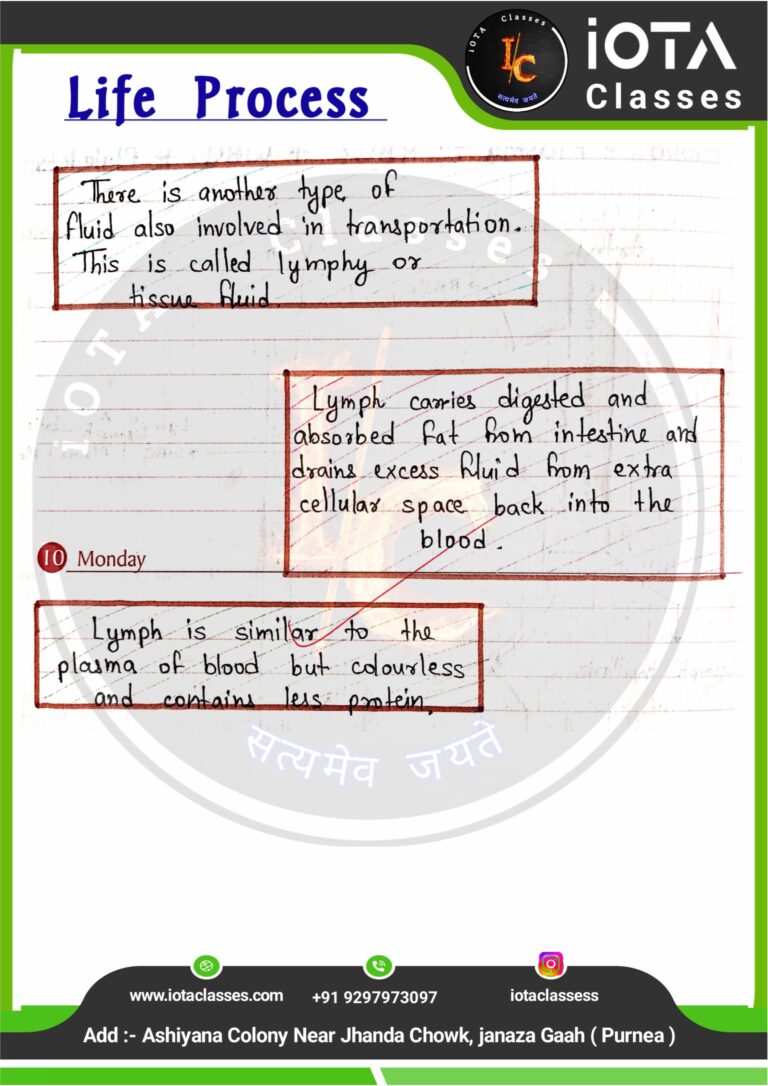 iOTA Classes
I/C
सत्यमेव जयते
iOTA
Classes
Life Process
There is another type of
fluid also involved in transportation.
This is called lymphy or
tissue fluid.
Lymph carries digested and
absorbed fat from intestine and
drains excess fluid from extra
cellular space back into the
blood.
10 Monday
Lymph is similar to the
plasma of blood but colourless
and contains less protein.
iOTA Classes
I/C
सत्यमेव जयते
www.iotaclasses.com
+91 9297973097
iotaclassess
Add :- Ashiyana Colony Near Jhanda Chowk, janaza Gaah ( Purnea )